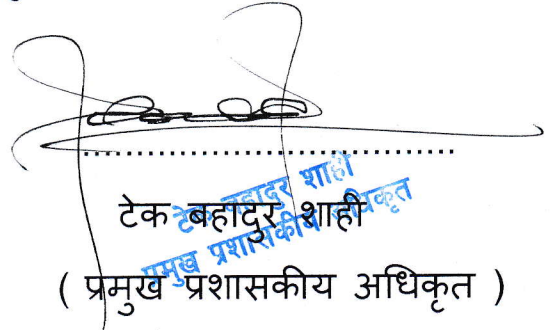 ....................................................
टेक बहादुर शाही
प्रमुख प्रशासकीय अधिकृत
टेक बहादुर शाही
( प्रमुख प्रशासकीय अधिकृत )